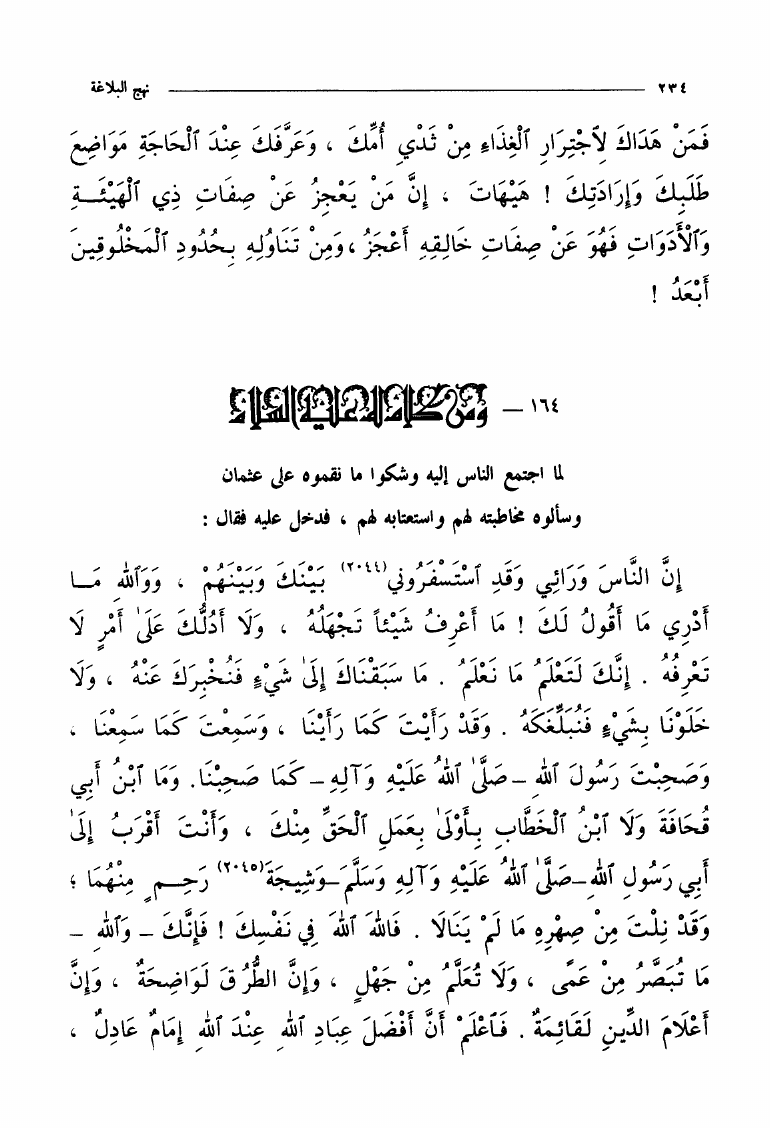 ٢٣٤ نهج البلاغة
فَمَنْ هَدَاكَ لِاجْتِرَارِ ٱلْغِذَاءِ مِنْ ثَدْيِ أُمِّكَ ، وَعَرَّفَكَ عِنْدَ ٱلْحَاجَةِ مَوَاضِعَ
طَلَبِكَ وَإِرَادَتِكَ ! هَيْهَاتَ ، إِنَّ مَنْ يَعْجِزُ عَنْ صِفَاتِ ذِي ٱلْهَيْئَـــةِ
وَٱلْأَدَوَاتِ فَهُوَ عَنْ صِفَاتِ خَالِقِهِ أَعْجَزُ ، وَمِنْ تَنَاوُلِهِ بِحُدُودِ ٱلْمَخْلُوقِينَ
أَبْعَدُ !
١٦٤ – ومن كلام له عليه السلام
لما اجتمع الناس إليه وشكوا ما نقموه على عثمان
وسألوه مخاطبته لهم واستعتابه لهم ، فدخل عليه فقال :
إِنَّ النَّاسَ وَرَائِي وَقَدِ ٱسْتَسْفَرُونِي(٢٠٤٤) بَيْنَكَ وَبَيْنَهُمْ ، وَوَٱللهِ مَــا
أَدْرِي مَا أَقُولُ لَكَ ! مَا أَعْرِفُ شَيْئاً تَجْهَلُهُ ، وَلَا أَدُلُّكَ عَلَىٰ أَمْرٍ لَا
تَعْرِفُهُ . إِنَّكَ لَتَعْلَمُ مَا نَعْلَمُ . مَا سَبَقْنَاكَ إِلَىٰ شَيْءٍ فَنُخْبِرَكَ عَنْهُ ، وَلَا
خَلَوْنَا بِشَيْءٍ فَنُبَلِّغَكَهُ . وَقَدْ رَأَيْتَ كَمَا رَأَيْنَا ، وَسَمِعْتَ كَمَا سَمِعْنَا ،
وَصَحِبْتَ رَسُولَ ٱللهِ – صَلَّىٰ ٱللهُ عَلَيْهِ وَآلِهِ – كَمَا صَحِبْنَا. وَمَا ٱبْنُ أَبِي
قُحَافَةَ وَلَا ٱبْنُ ٱلْخَطَّابِ بِأَوْلَىٰ بِعَمَلِ ٱلْحَقِّ مِنْكَ ، وَأَنْتَ أَقْرَبُ إِلَىٰ
أَبِي رَسُولِ ٱللهِ – صَلَّىٰ ٱللهُ عَلَيْهِ وَآلِهِ وَسَلَّمَ – وَشِيجَةَ(٢٠٤٥) رَحِـــمٍ مِنْهُمَا ؛
وَقَدْ نِلْتَ مِنْ صِهْرِهِ مَا لَمْ يَنَالَا . فَاللهَ ٱللهَ فِي نَفْسِكَ ! فَإِنَّكَ – وَٱللهِ –
مَا تُبَصَّرُ مِنْ عَمًى ، وَلَا تُعَلَّمُ مِنْ جَهْلٍ ، وَإِنَّ الطُّرُقَ لَوَاضِحَةٌ ، وَإِنَّ
أَعْلَامَ الدِّينِ لَقَائِمَةٌ . فَٱعْلَمْ أَنَّ أَفْضَلَ عِبَادِ ٱللهِ عِنْدَ ٱللهِ إِمَامٌ عَادِلٌ ،